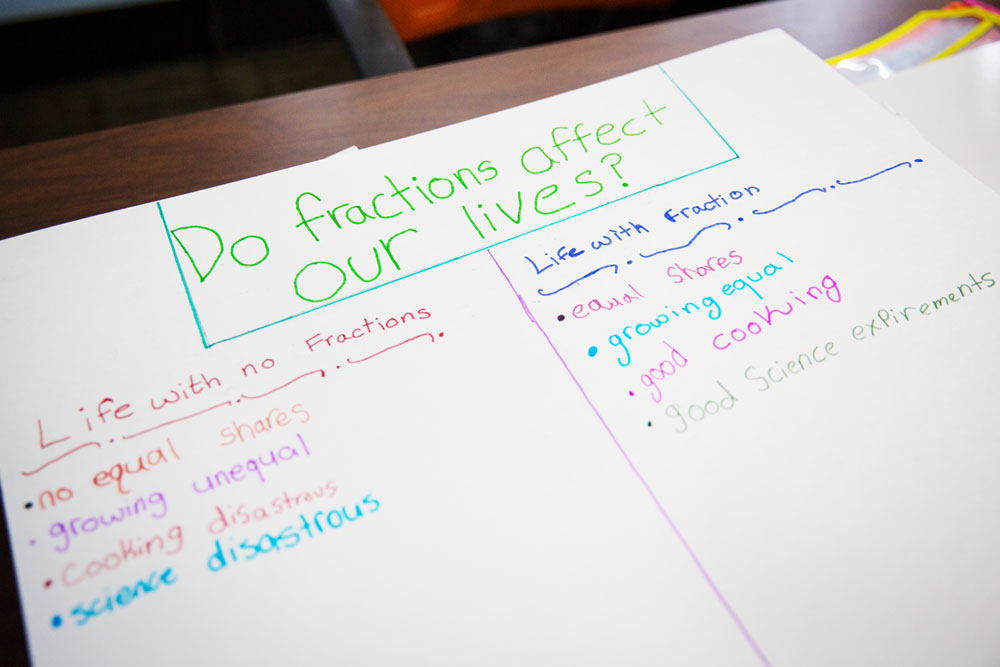 Do fractions affect
our lives?
Life with no Fractions
• no equal shares
• growing unequal
• cooking disastrous
• science disastrous
Life with Fraction
• equal shares
• growing equal
• good cooking
• good Science expirements